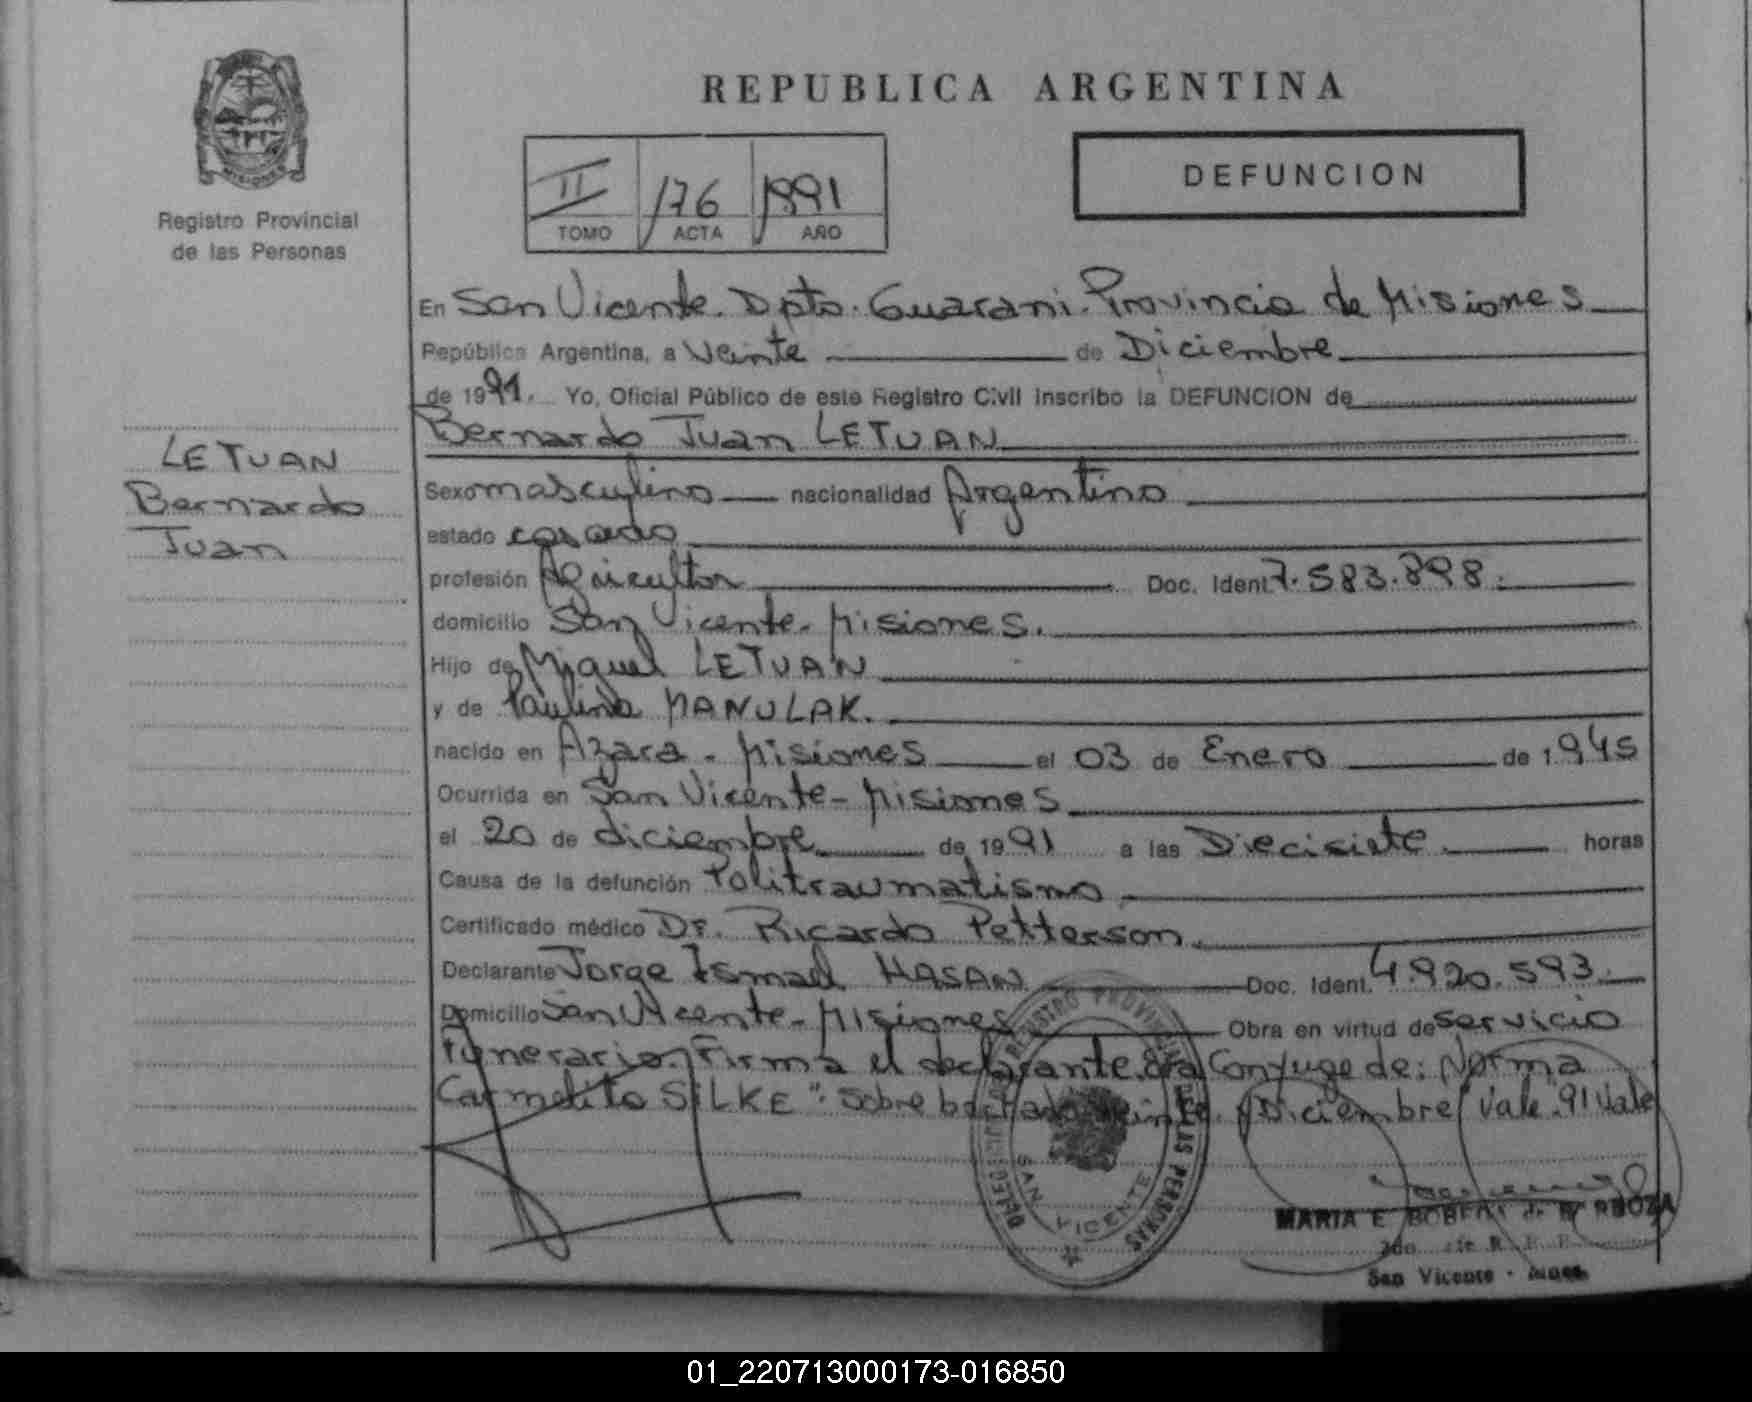 REPUBLICA ARGENTINA
MISIONES
Registro Provincial
de las Personas
II 176 1991
TOMO ACTA AÑO
DEFUNCION
En San Vicente. Dpto. Guarani. Provincia de Misiones
República Argentina, a Veinte de Diciembre
de 1991. Yo, Oficial Público de este Registro Civil inscribo la DEFUNCION de
Bernardo Juan LETUAN
LETUAN
Bernardo
Juan
Sexo masculino nacionalidad Argentino
estado casado
profesión Agricultor Doc. Ident. 7.583.898.
domicilio San Vicente. Misiones.
Hijo de Miguel LETUAN
y de Paulina MANULAK.
nacido en Azara. Misiones el 03 de Enero de 1.945
Ocurrida en San Vicente - Misiones
el 20 de diciembre de 1991 a las Diecisiete. horas
Causa de la defunción Politraumatismo
Certificado médico Dr. Ricardo Petterson.
Declarante Jorge Ismael HASAN Doc. Ident. 4.920.593.
Domicilio San Vicente - Misiones Obra en virtud de servicio
Funerario. Firma el declarante. Era Conyuge de: Norma
Carmelita SILKE". Sobre borrado Veinte. Diciembre Vale. 91 Vale
REGISTRO PROVINCIAL DE LAS PERSONAS
SAN VICENTE
MARIA E. de BARBOZA
San Vicente - Mnes.
01_220713000173-016850